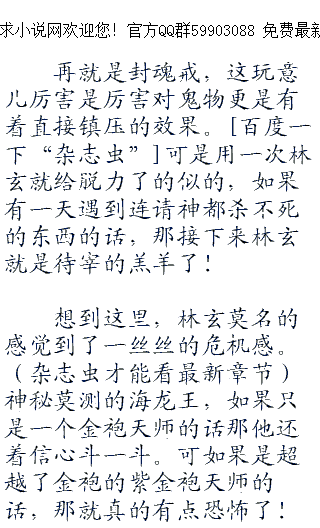 求小说网欢迎您！官方QQ群59903088 免费最新
再就是封魂戒，这玩意
儿厉害是厉害对鬼物更是有
着直接镇压的效果。[百度一
下“杂志虫”]可是用一次林
玄就给脱力了的似的，如果
有一天遇到连请神都杀不死
的东西的话，那接下来林玄
就是待宰的羔羊了！
想到这里，林玄莫名的
感觉到了一丝丝的危机感。
（杂志虫才能看最新章节）
神秘莫测的海龙王，如果只
是一个金袍天师的话那他还
着信心斗一斗。可如果是超
越了金袍的紫金袍天师的
话，那就真的有点恐怖了！